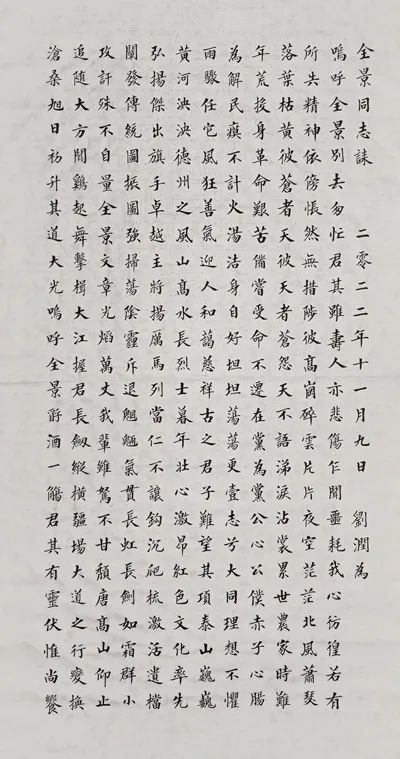 全景同志誄 二零二二年十一月九日 劉潤為
嗚呼全景別去匆忙君其雖壽人亦悲傷乍聞噩耗我心彷徨若有
所失精神依傍悵然無措陟彼髙崗碎雲片片夜空茫茫北風蕭瑟
落葉枯黃彼蒼者天彼天者蒼怨天不語涕淚沾裳累世農家時難
年荒投身革命艱苦備嘗受命不遷在黨為黨公心公僕赤子心腸
為解民瘼不計火湯洁身自好坦坦蕩蕩更壹志兮大同理想不懼
雨驟任它風狂善氣迎人和藹慈祥古之君子難望其項泰山巍巍
黃河泱泱德州之風山髙水長烈士暮年壯心激昂紅色文化率先
弘揚傑出旗手卓越主將揚厲馬列當仁不讓鈎沉爬梳激活遺檔
闡發傳統圖振圖強掃蕩陰霾斥退魍魎氣貫長虹長劍如霜群小
攻訐殊不自量全景文章光焰萬丈我輩雖駑不甘頹唐髙山仰止
追隨大方聞鷄起舞擊楫大江握君長劔縱橫疆場大道之行變換
滄桑旭日初升其道大光嗚呼全景酹酒一觴君其有靈伏惟尚饗